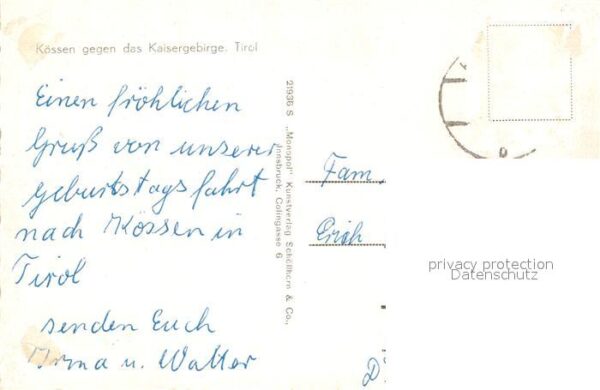 Kössen gegen das Kaisergebirge. Tirol
Einen fröhlichen
Gruß von unserer
Geburtstagsfahrt
nach Kössen in
Tirol
senden Euch
Irma u. Walter
21936 S „Monopol" Kunstverlag Schöllhorn & Co.,
Innsbruck, Colingasse 6
Fam.
Erich
D
privacy protection
Datenschutz